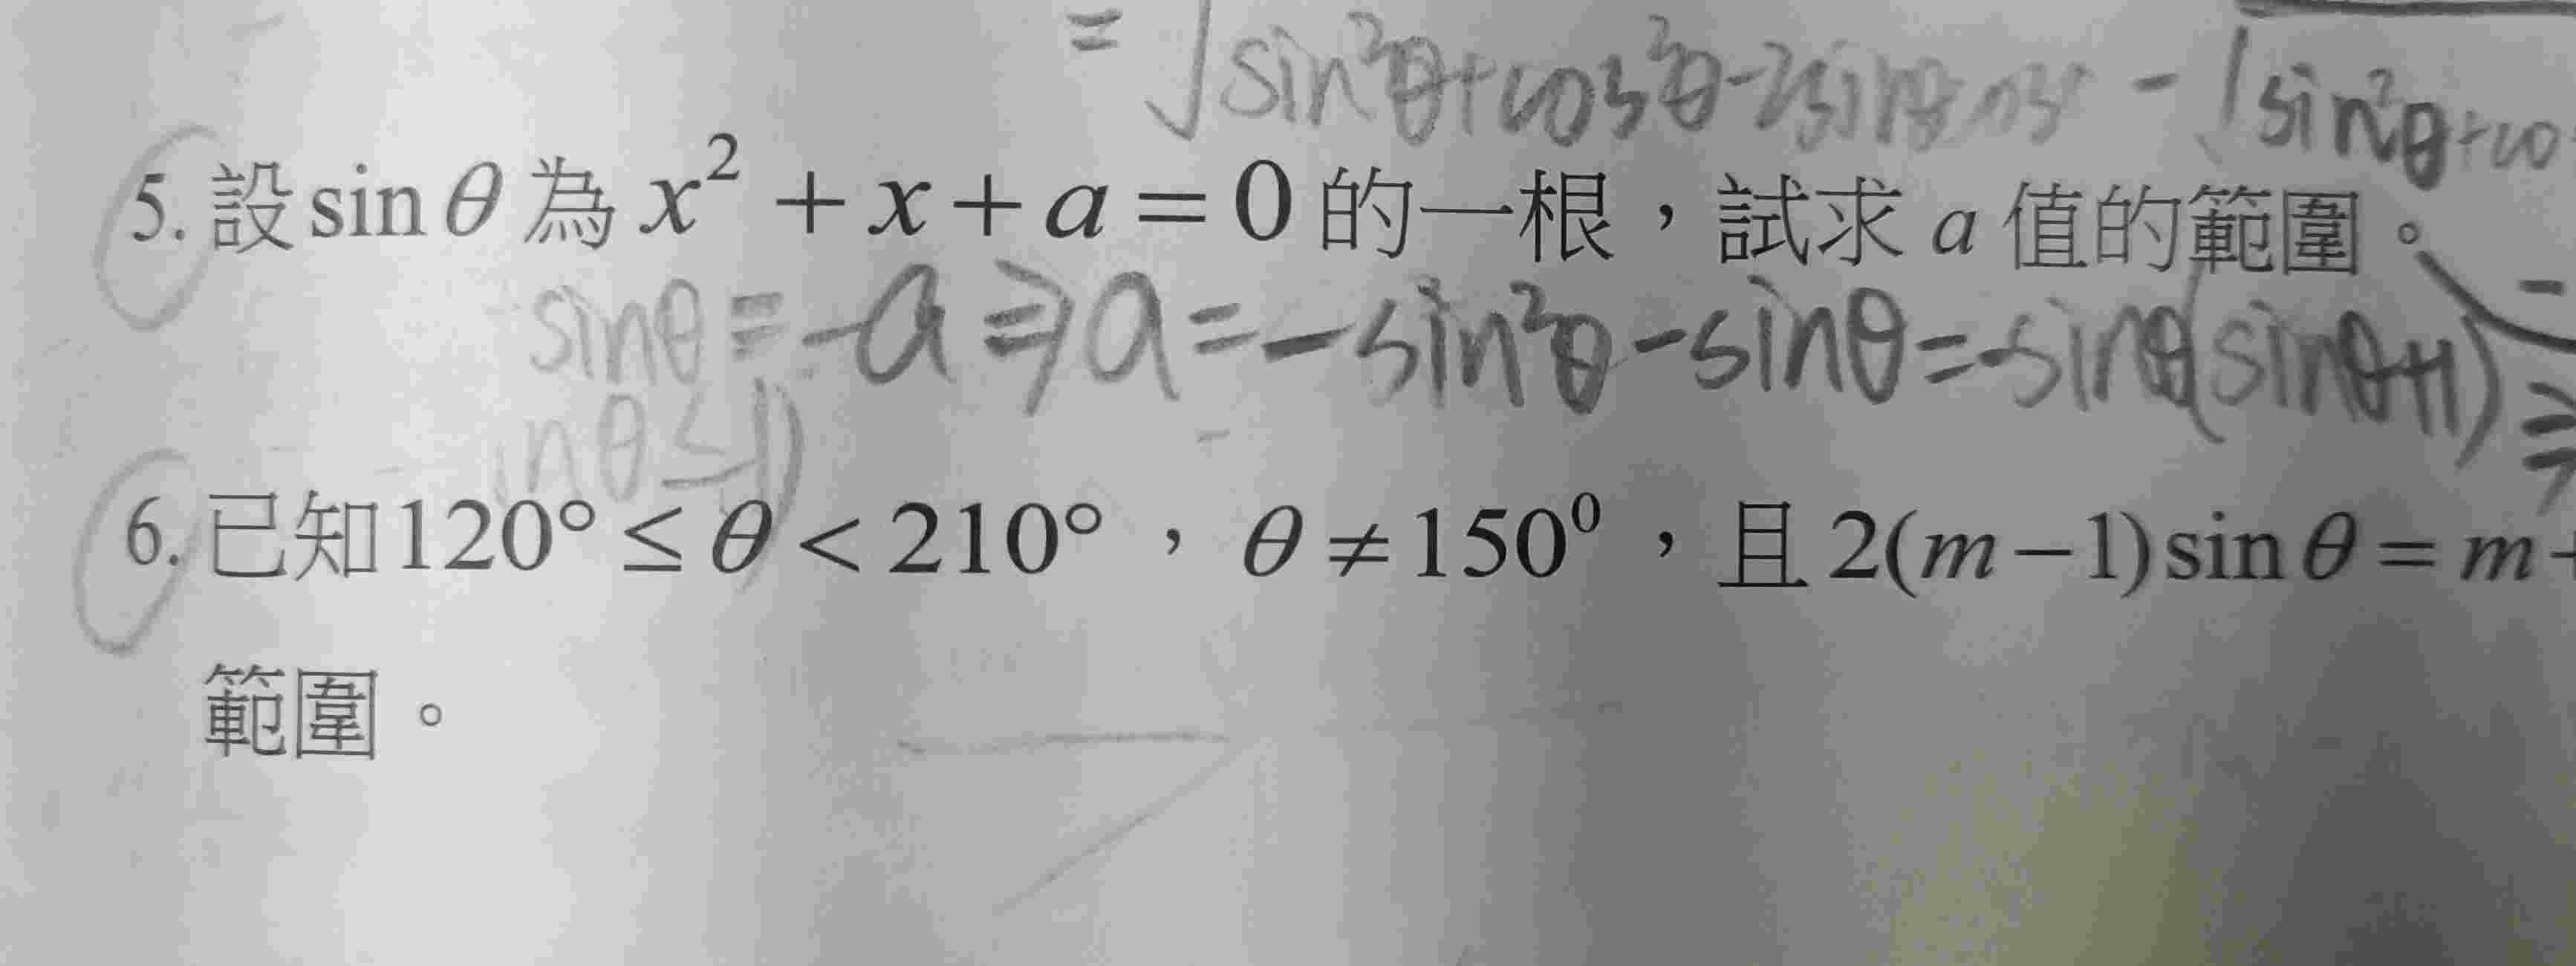 = √sin²θ+cos²θ-2sinθcos - √sin²θ+co
5. 設 sin θ 為 x² + x + a = 0 的一根，試求 a 值的範圍。
sinθ = -a ⇒ a = -sin²θ - sinθ = -sinθ(sinθ+1)
inθ ≤ 1)
6. 已知 120° ≤ θ < 210°，θ ≠ 150⁰，且 2(m−1) sin θ = m
範圍。